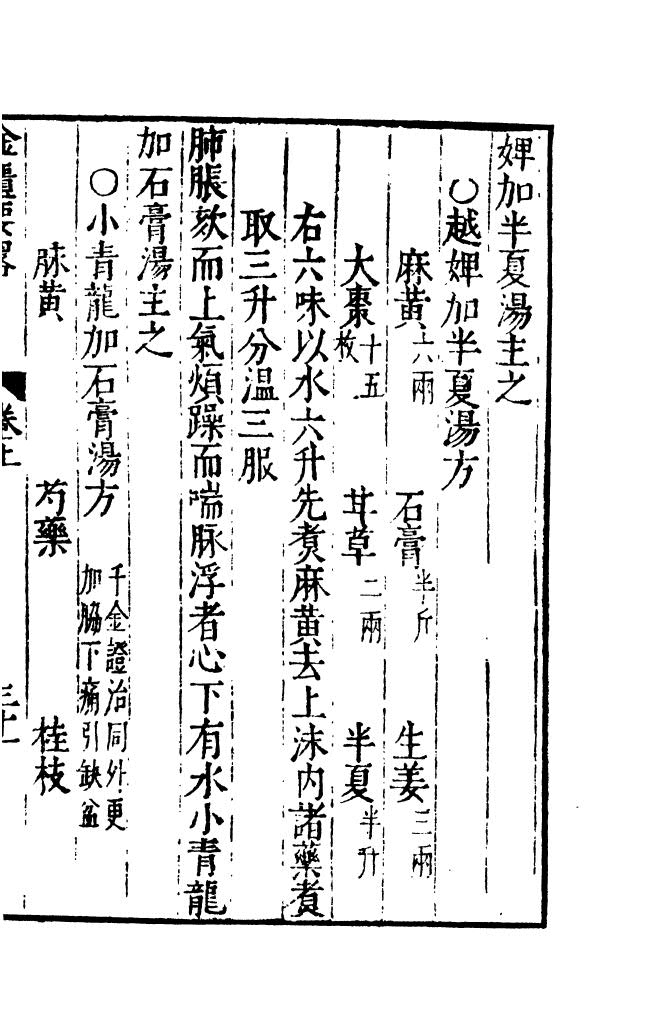 婢加半夏湯主之
○越婢加半夏湯方
麻黄六兩 石膏半斤 生姜三兩
大棗十五枚 甘草二兩 半夏半升
右六味以水六升先煮麻黄去上沫内諸藥煮
取三升分温三服
肺脹欬而上氣煩躁而喘脉浮者心下有水小青龍
加石膏湯主之
○小青龍加石膏湯方千金證治同外更加脇下痛引缺盆
麻黄 芍藥 桂枝
金匱要畧 卷上